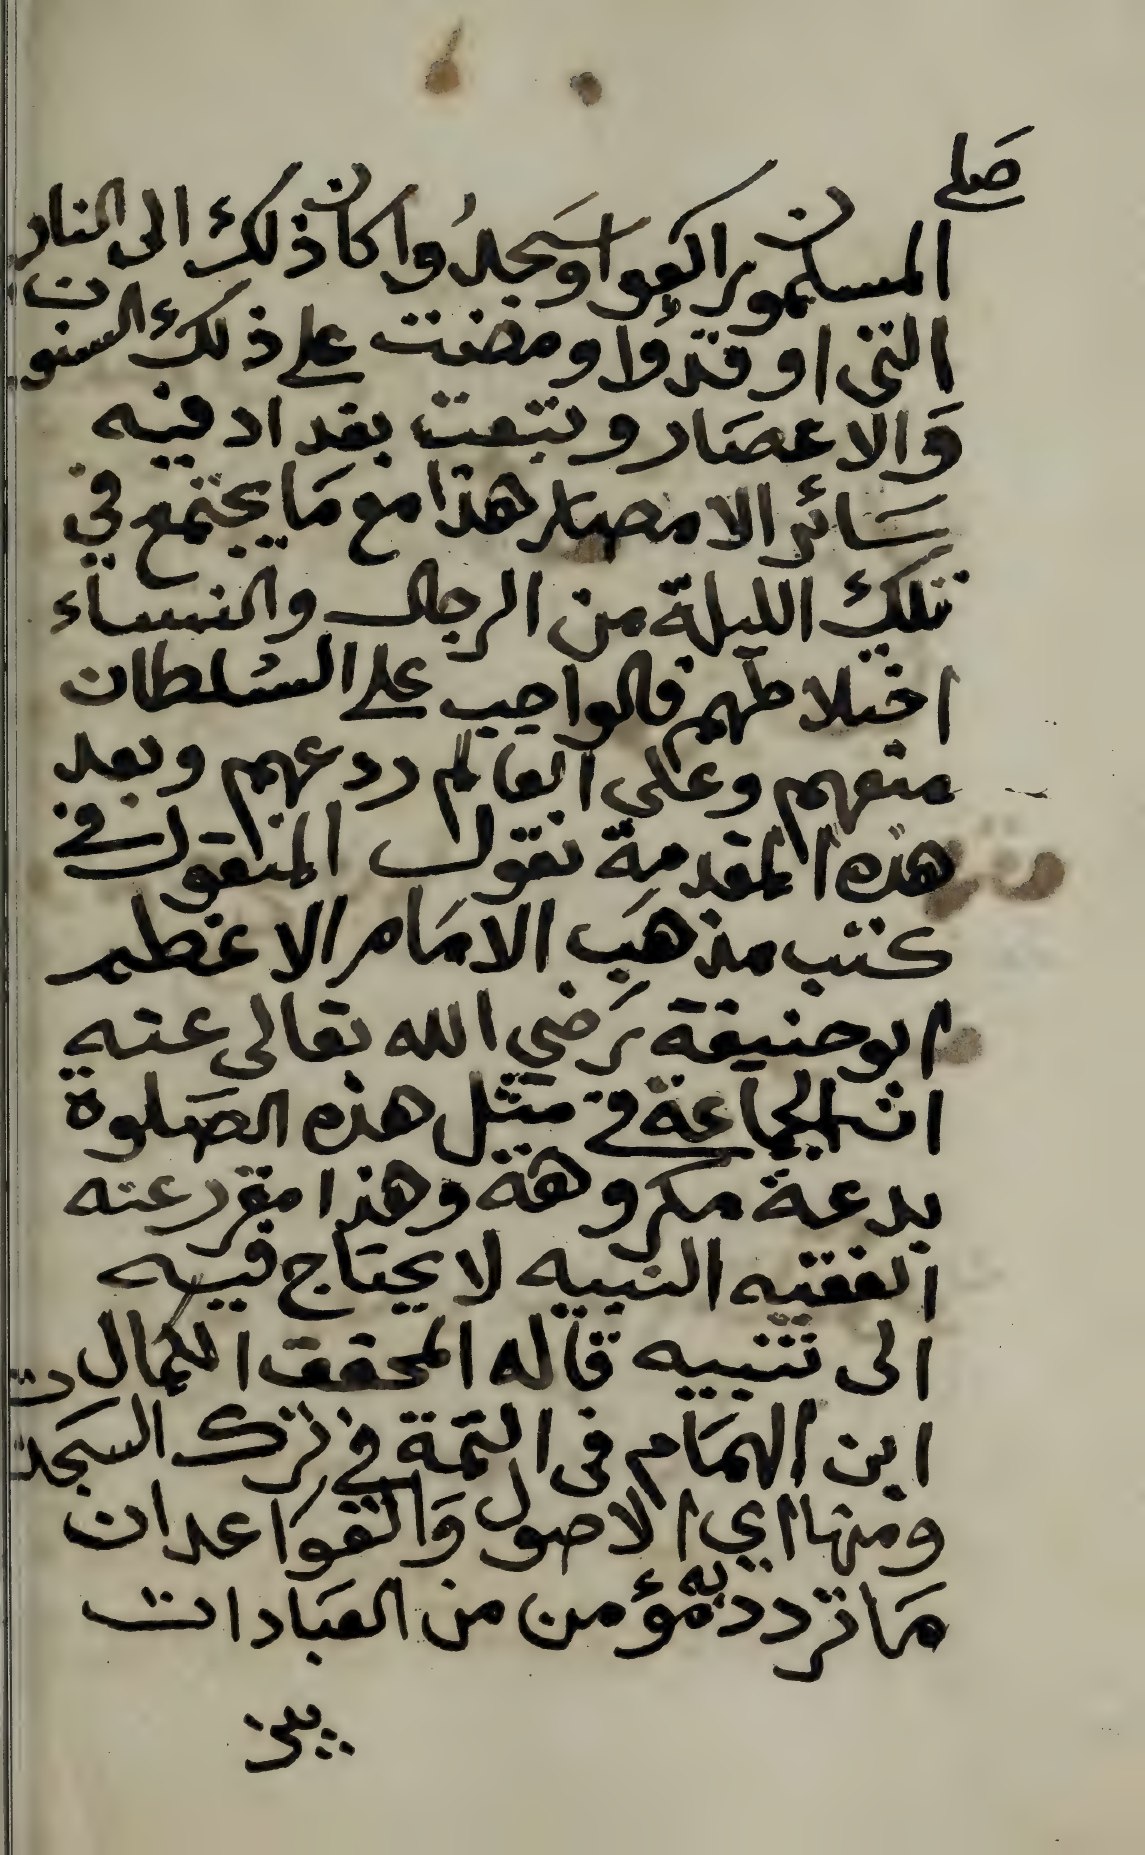 صلى
المسلمون راكعوا وسجدوا كان ذلك الى النار
التى اوقدوا ومضت على ذلك السنون
والاعصار وتبعت بغداد فيه
سائر الامصار هذا مع ما يجتمع في
تلك الليلة من الرجال والنساء
اختلاطهم فالواجب على السلطان
منعهم وعلى العالم ردعهم وبعد
هذه المقدمة نقول المنقول في
كتب مذهب الامام الاعظم
ابو حنيفة رضي الله تعالى عنه
ان الجماعة في مثل هذه الصلوة
بدعة مكروهة وهذا مقرر عنه
الفقيه النبيه لا يحتاج فيه
الى تنبيه قاله المحقق الكمال
ابن الهمام فى التتمة في ترك السجدات
ومنها اي الاصول والقواعد ان
ما تردد به مؤمن من العبادات
بين